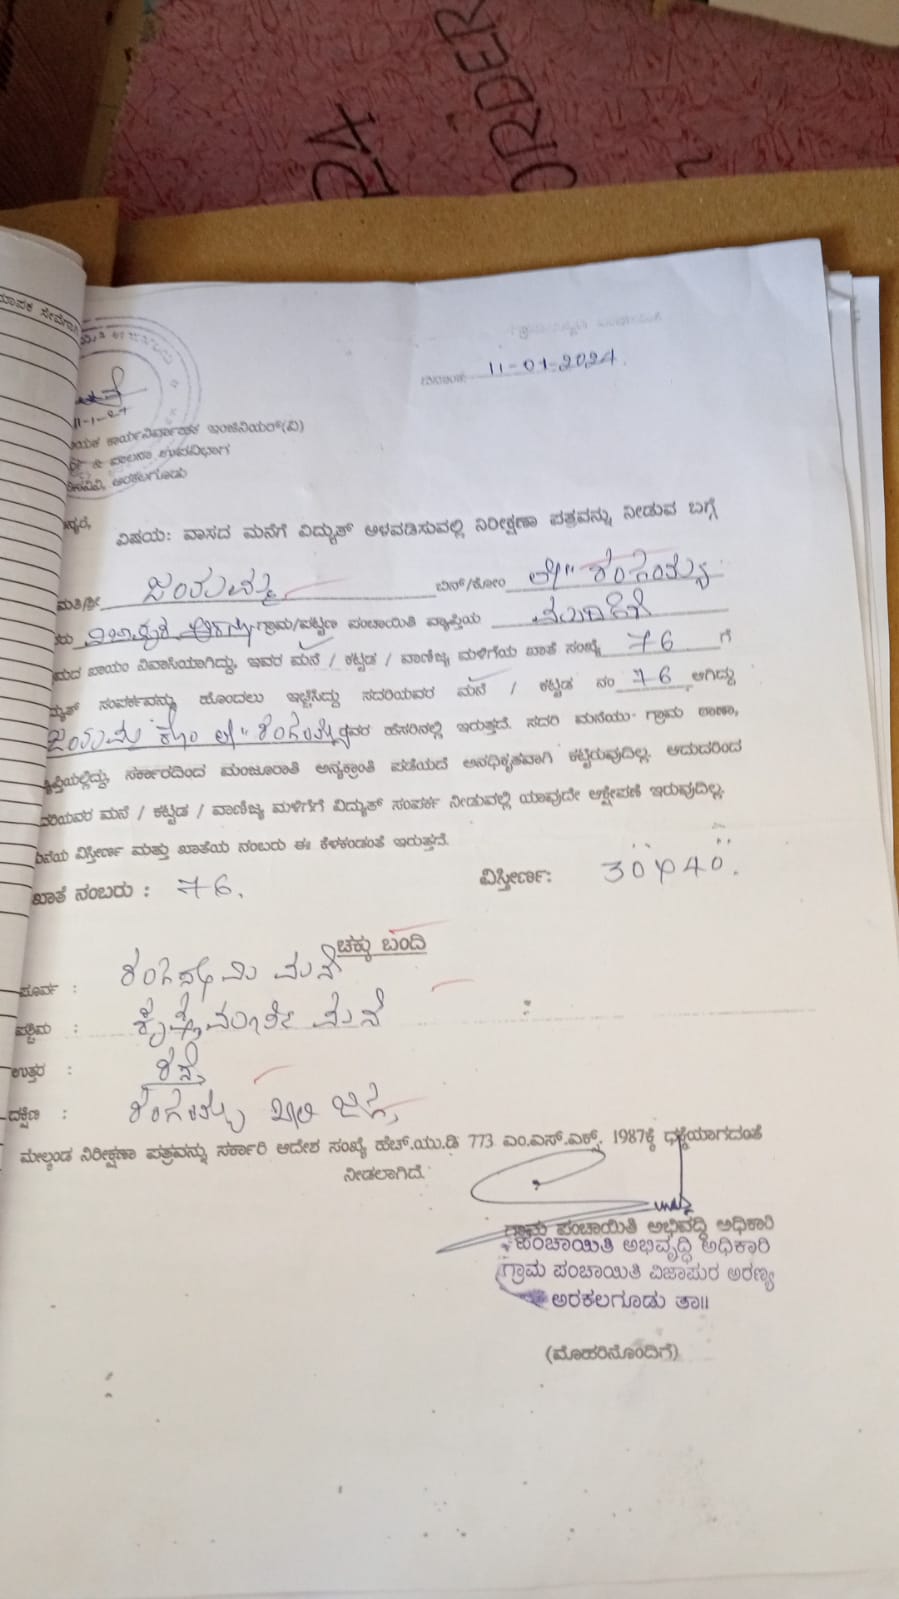 24
ORDER
11-01-2024.
11-1-24
ಕಾರ್ಯನಿರ್ವಾಹಕ ಇಂಜಿನಿಯರ್(ವಿ)
ಪಾಲನಾ ಉಪವಿಭಾಗ
ಅರಕಲಗೂಡು
ವಿಷಯ: ವಾಸದ ಮನೆಗೆ ವಿದ್ಯುತ್ ಅಳವಡಿಸುವಲ್ಲಿ ನಿರೀಕ್ಷಣಾ ಪತ್ರವನ್ನು ನೀಡುವ ಬಗ್ಗೆ
ಮತಿ/ಶ್ರೀ ಬಿನ್/ಕೋಂ ಲೇ॥ ರಂಗಯ್ಯ
ಗ್ರಾಮ/ಪಟ್ಟಣ ಪಂಚಾಯಿತಿ ವ್ಯಾಪ್ತಿಯ
ಮದ ಖಾಯಂ ನಿವಾಸಿಯಾಗಿದ್ದು, ಇವರ ಮನೆ / ಕಟ್ಟಡ / ವಾಣಿಜ್ಯ ಮಳಿಗೆಯ ಖಾತೆ ಸಂಖ್ಯೆ 76 ಗೆ
ದ್ಯುತ್ ಸಂಪರ್ಕವನ್ನು ಹೊಂದಲು ಇಚ್ಛಿಸಿದ್ದು ಸದರಿಯವರ ಮನೆ / ಕಟ್ಟಡ ನಂ 76 ಆಗಿದ್ದು
ಕೋಂ ಲೇ॥ ರಂಗಯ್ಯ ರವರ ಹೆಸರಿನಲ್ಲಿ ಇರುತ್ತದೆ. ಸದರಿ ಮನೆಯು ಗ್ರಾಮ ಠಾಣಾ,
ವ್ಯಾಪ್ತಿಯಲ್ಲಿದ್ದು, ಸರ್ಕಾರದಿಂದ ಮಂಜೂರಾತಿ ಅನ್ಯಕ್ರಾಂತಿ ಪಡೆಯದೆ ಅನಧಿಕೃತವಾಗಿ ಕಟ್ಟಿರುವುದಿಲ್ಲ. ಆದುದರಿಂದ
ದರಿಯವರ ಮನೆ / ಕಟ್ಟಡ / ವಾಣಿಜ್ಯ ಮಳಿಗೆಗೆ ವಿದ್ಯುತ್ ಸಂಪರ್ಕ ನೀಡುವಲ್ಲಿ ಯಾವುದೇ ಆಕ್ಷೇಪಣೆ ಇರುವುದಿಲ್ಲ.
ವಿಸ್ತೀರ್ಣ ಮತ್ತು ಖಾತೆಯ ನಂಬರು ಈ ಕೆಳಕಂಡಂತೆ ಇರುತ್ತದೆ.
ಖಾತೆ ನಂಬರು : 76. ವಿಸ್ತೀರ್ಣ: 30 × 40.
ಚಕ್ಕು ಬಂದಿ
ಪೂರ್ವ : ರಂಗಸ್ವಾಮಿ ಮನೆ
ಪಶ್ಚಿಮ : ಮೂರ್ತಿ ಮನೆ
ಉತ್ತರ : ರಸ್ತೆ
ದಕ್ಷಿಣ : ರಂಗಯ್ಯ ಖಾಲಿ ಜಾಗ
ಮೇಲ್ಕಂಡ ನಿರೀಕ್ಷಣಾ ಪತ್ರವನ್ನು ಸರ್ಕಾರಿ ಆದೇಶ ಸಂಖ್ಯೆ ಹೆಚ್.ಯು.ಡಿ 773 ಎಂ.ಎನ್.ಎಕ್ಸ್. 1987ಕ್ಕೆ ಧಕ್ಕೆಯಾಗದಂತೆ
ನೀಡಲಾಗಿದೆ.
ಗ್ರಾಮ ಪಂಚಾಯಿತಿ ಅಭಿವೃದ್ಧಿ ಅಧಿಕಾರಿ
ಪಂಚಾಯಿತಿ ಅಭಿವೃದ್ಧಿ ಅಧಿಕಾರಿ
ಗ್ರಾಮ ಪಂಚಾಯಿತಿ ವಿಜಾಪುರ ಅರಣ್ಯ
ಅರಕಲಗೂಡು ತಾ॥
(ಮೊಹರಿನೊಂದಿಗೆ)